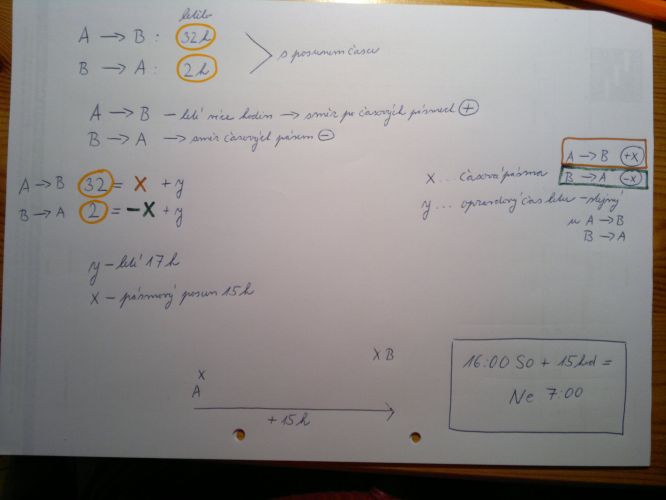 letělo
A → B : 32h
B → A : 2h
s posunem času
A → B – letí více hodin → směr po časových pásmech +
B → A → směr časových pásem –
A → B 32 = x + y
B → A 2 = -x + y
x ... časová pásma
A → B +x
B → A -x
y ... opravdový čas letu – stejný
u A → B
B → A
y – letí 17h
x – pásmový posun 15h
x B
x
A
+ 15h
16:00 So + 15hod =
Ne 7:00